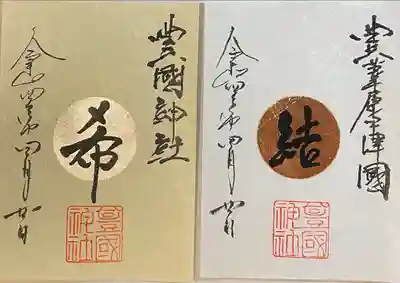 豊國神社
希
令和四年四月廿日
豊國神社
豊葦原中津國
結
令和四年四月廿日
豊國神社